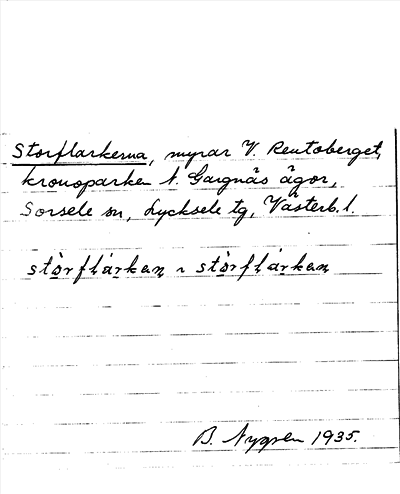 Storflarkerna, myrar V. Rentoberget,
kronoparken t. Gargnäs ägor,
Sorsele sn, Lycksele tg, Västerb. l.
stòrflárkaṇ ~ stórflárkaṇ
B. Nygren 1935.